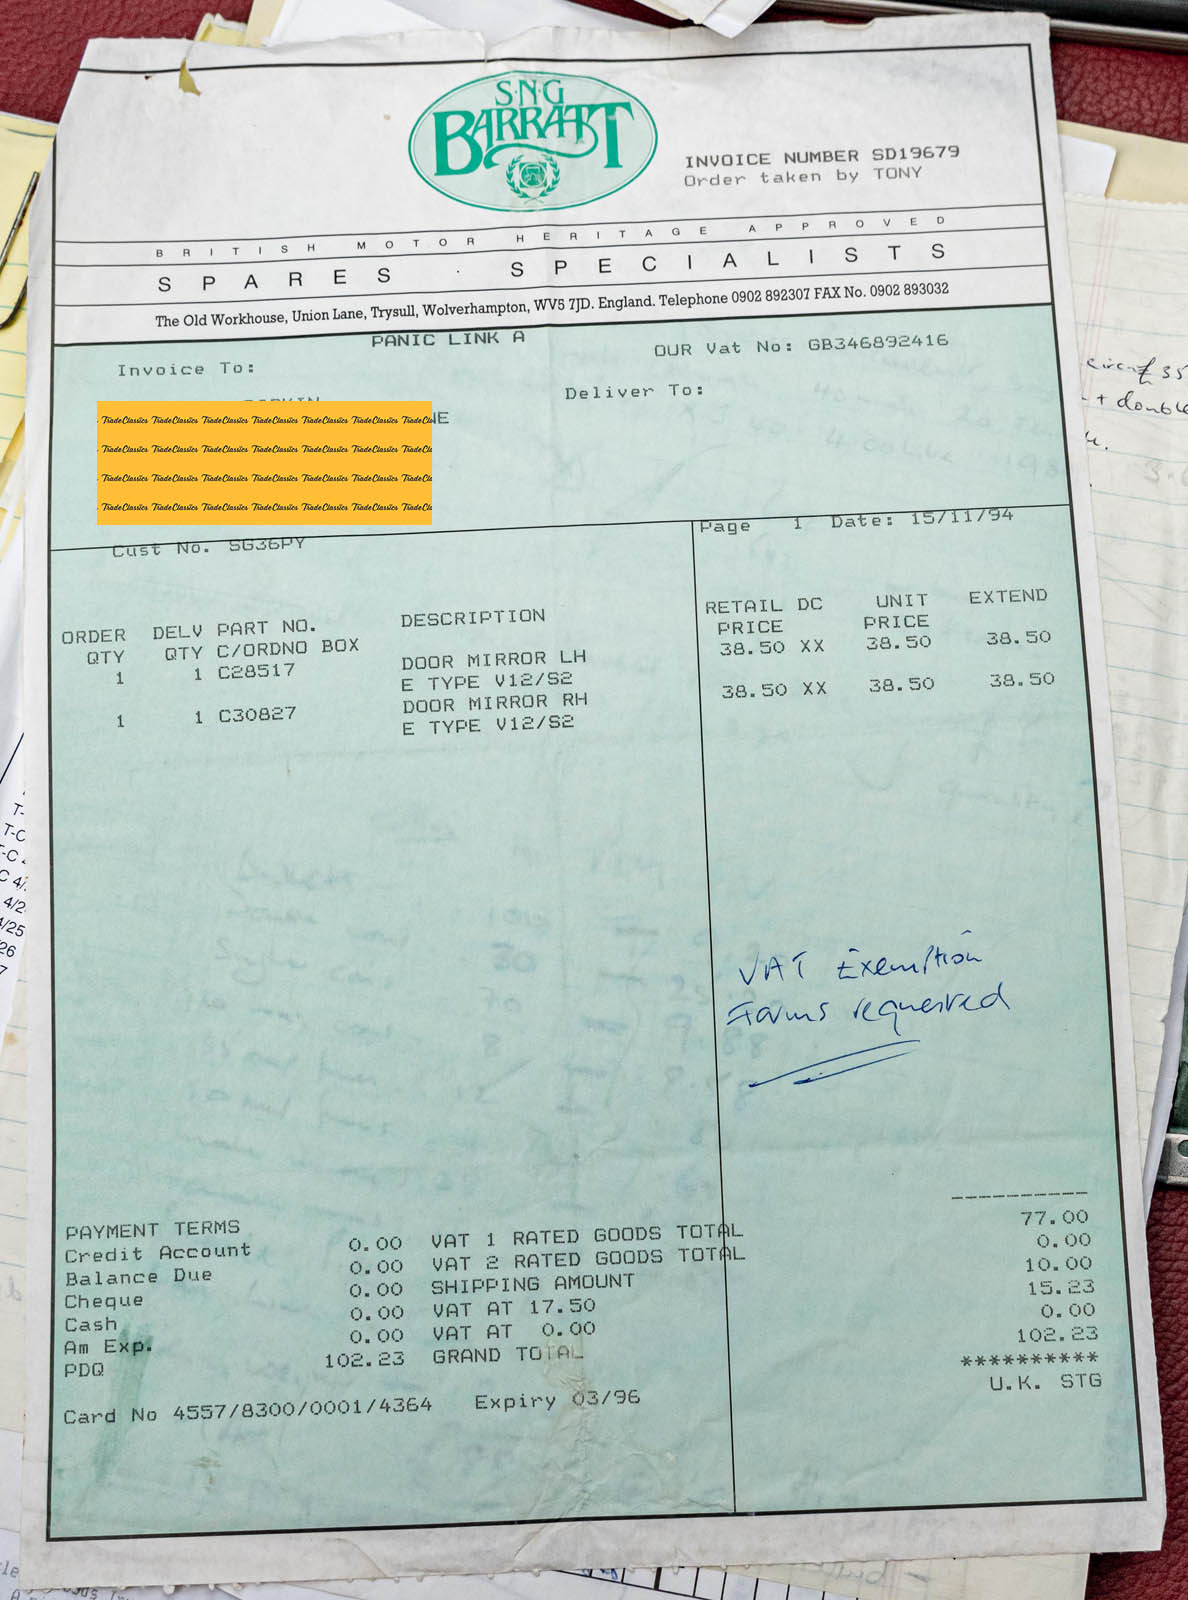 S·N·G
BARRATT
INVOICE NUMBER SD19679
Order taken by TONY
BRITISH MOTOR HERITAGE APPROVED
SPARES · SPECIALISTS
The Old Workhouse, Union Lane, Trysull, Wolverhampton, WV5 7JD. England. Telephone 0902 892307 FAX No. 0902 893032
PANIC LINK A
OUR Vat No: GB346892416
Invoice To:
Deliver To:
NE
TradeClassics TradeClassics TradeClassics TradeClassics TradeClassics TradeClassics
TradeClassics TradeClassics TradeClassics TradeClassics TradeClassics TradeClassics
TradeClassics TradeClassics TradeClassics TradeClassics TradeClassics TradeClassics
TradeClassics TradeClassics TradeClassics TradeClassics TradeClassics TradeClassics
Cust No. SG36PY
Page 1 Date: 15/11/94
ORDER DELV PART NO. DESCRIPTION RETAIL DC UNIT EXTEND
QTY QTY C/ORDNO BOX PRICE PRICE
1 1 C28517 DOOR MIRROR LH 38.50 XX 38.50 38.50
E TYPE V12/S2
1 1 C30827 DOOR MIRROR RH 38.50 XX 38.50 38.50
E TYPE V12/S2
VAT Exemption
Forms requested
PAYMENT TERMS
Credit Account 0.00 VAT 1 RATED GOODS TOTAL 77.00
Balance Due 0.00 VAT 2 RATED GOODS TOTAL 0.00
Cheque 0.00 SHIPPING AMOUNT 10.00
Cash 0.00 VAT AT 17.50 15.23
Am Exp. 0.00 VAT AT 0.00 0.00
PDQ 102.23 GRAND TOTAL 102.23
**********
U.K. STG
Card No 4557/8300/0001/4364 Expiry 03/96
35
+ double